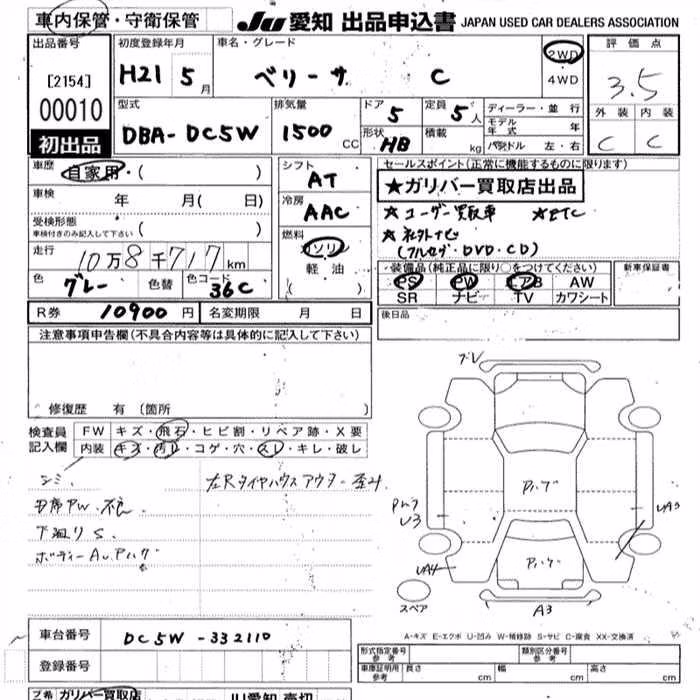 車内保管・守衛保管 JU 愛知 出品申込書 JAPAN USED CAR DEALERS ASSOCIATION
出品番号 初度登録年月 車名・グレード 評価点
[2154] H21 5月 ベリーサ C 2WD 4WD 3.5
00010 型式 排気量 ドア 5 定員 5人 ディーラー・並行 外装 内装
初出品 DBA-DC5W 1500 CC 形状 HB 積載 kg モデル年式 年 左・右 C C
車歴 自家用・( ) シフト AT セールスポイント(正常に機能するものに限ります)
車検 年 月( 日) 冷房 AAC ★ガリバー買取店出品
受検形態 車検付きのみ記入して下さい ( ) ★ユーザー買取車 ★ETC
走行 10万8千717km 燃料 ガソリン ★社外ナビ
軽油 (フルセグ・DVD・CD)
色 グレー 色替 色コード 36C ( ) 装備品(純正品に限り○をつけてください) 新車保証書
PS PW エアB AW
SR ナビ TV カワシート
R券 10900円 名変期限 月 日 後日品
注意事項申告欄(不具合内容等は具体的に記入して下さい)
修復歴 有 (箇所
検査員 FW キズ・飛石・ヒビ割・リペア跡・X要
記入欄 内装 キズ・汚レ・コゲ・穴・スレ・キレ・破レ
シミ 左Rタイヤハウスアウター歪み
PW 不良
下廻りS
ボディー
UA3
U3
UA4
スペア A3
A-キズ E-エクボ U-凹み W-補修跡 S-サビ C-腐食 XX-交換済
車台番号 DC5W-332110
登録番号
形式指定番号 参考 類別区分番号 参考
車庫証明用 参考 長さ cm 幅 cm 高さ cm
ガリバー買取店 JU愛知